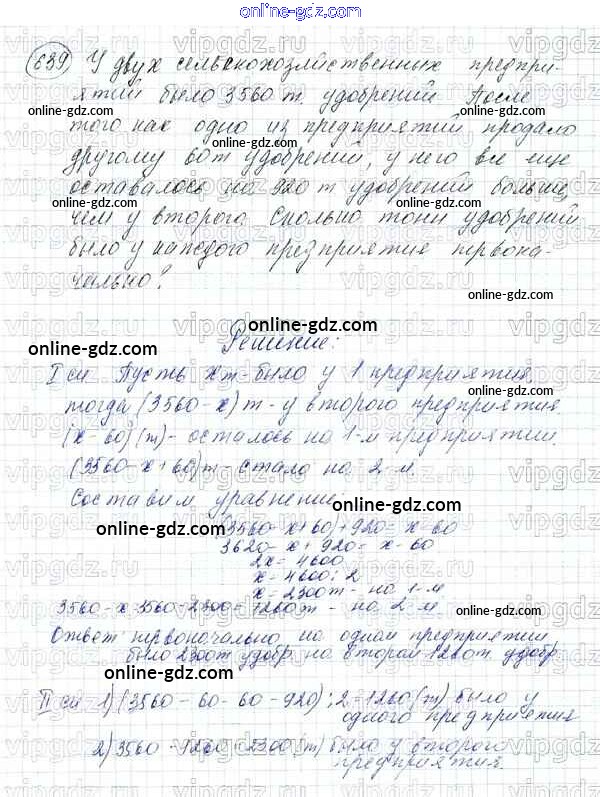 online-gdz.com
639) У двух сельскохозяйственных предпри-
ятий было 3560 т. удобрений. После
того как одно из предприятий продало
другому 60 т удобрений, у него все еще
оставалось на 920 т удобрений больше,
чем у второго. Сколько тонн удобрений
было у каждого предприятия первона-
чально?
online-gdz.com
Решение:
online-gdz.com
I сп Пусть х т - было у 1 предприятия,
тогда (3560 - х) т - у второго предприятия
(х - 60) (т) - осталось на 1-м предприятии.
(3560 - х + 60) т - стало на 2-м.
Составим уравнение:
online-gdz.com
(3560 - х + 60) + 920 = х - 60
3620 - х + 920 = х - 60
2х = 4600
х = 4600 : 2
х = 2300 т - на 1-м
3560 - х = 3560 - 2300 = 1260 т - на 2-м
online-gdz.com
Ответ первоначально на одном предприятии
было 2300 т удобр. на втором 1260 т. удобр.
II сп 1) (3560 - 60 - 60 - 920) : 2 = 1260 (т) было у
одного предприятия
2) 3560 - 1260 = 2300 (т) было у второго
предприятия.
online-gdz.com